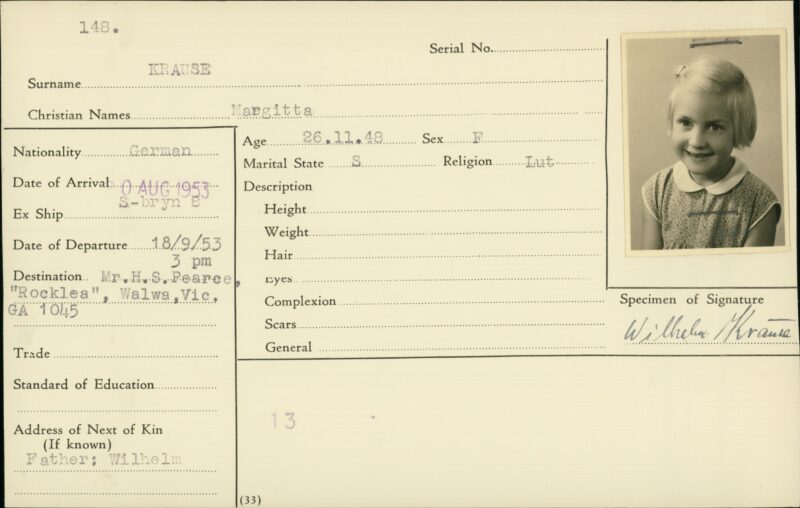 148.
Serial No.
Surname KRAUSE
Christian Names Margitta
Nationality German
Date of Arrival 0 AUG 1953
Ex Ship S-bryn 8
Date of Departure 18/9/53
3 pm
Destination Mr.H.S.Pearce,
"Rocklea", Walwa,Vic.
GA 1045
Trade
Standard of Education
Address of Next of Kin
(If known)
Father: Wilhelm
Age 26.11.48 Sex F
Marital State S Religion Lut
Description
Height
Weight
Hair
Eyes
Complexion
Scars
General
13
(33)
Specimen of Signature
Wilhelm Krause